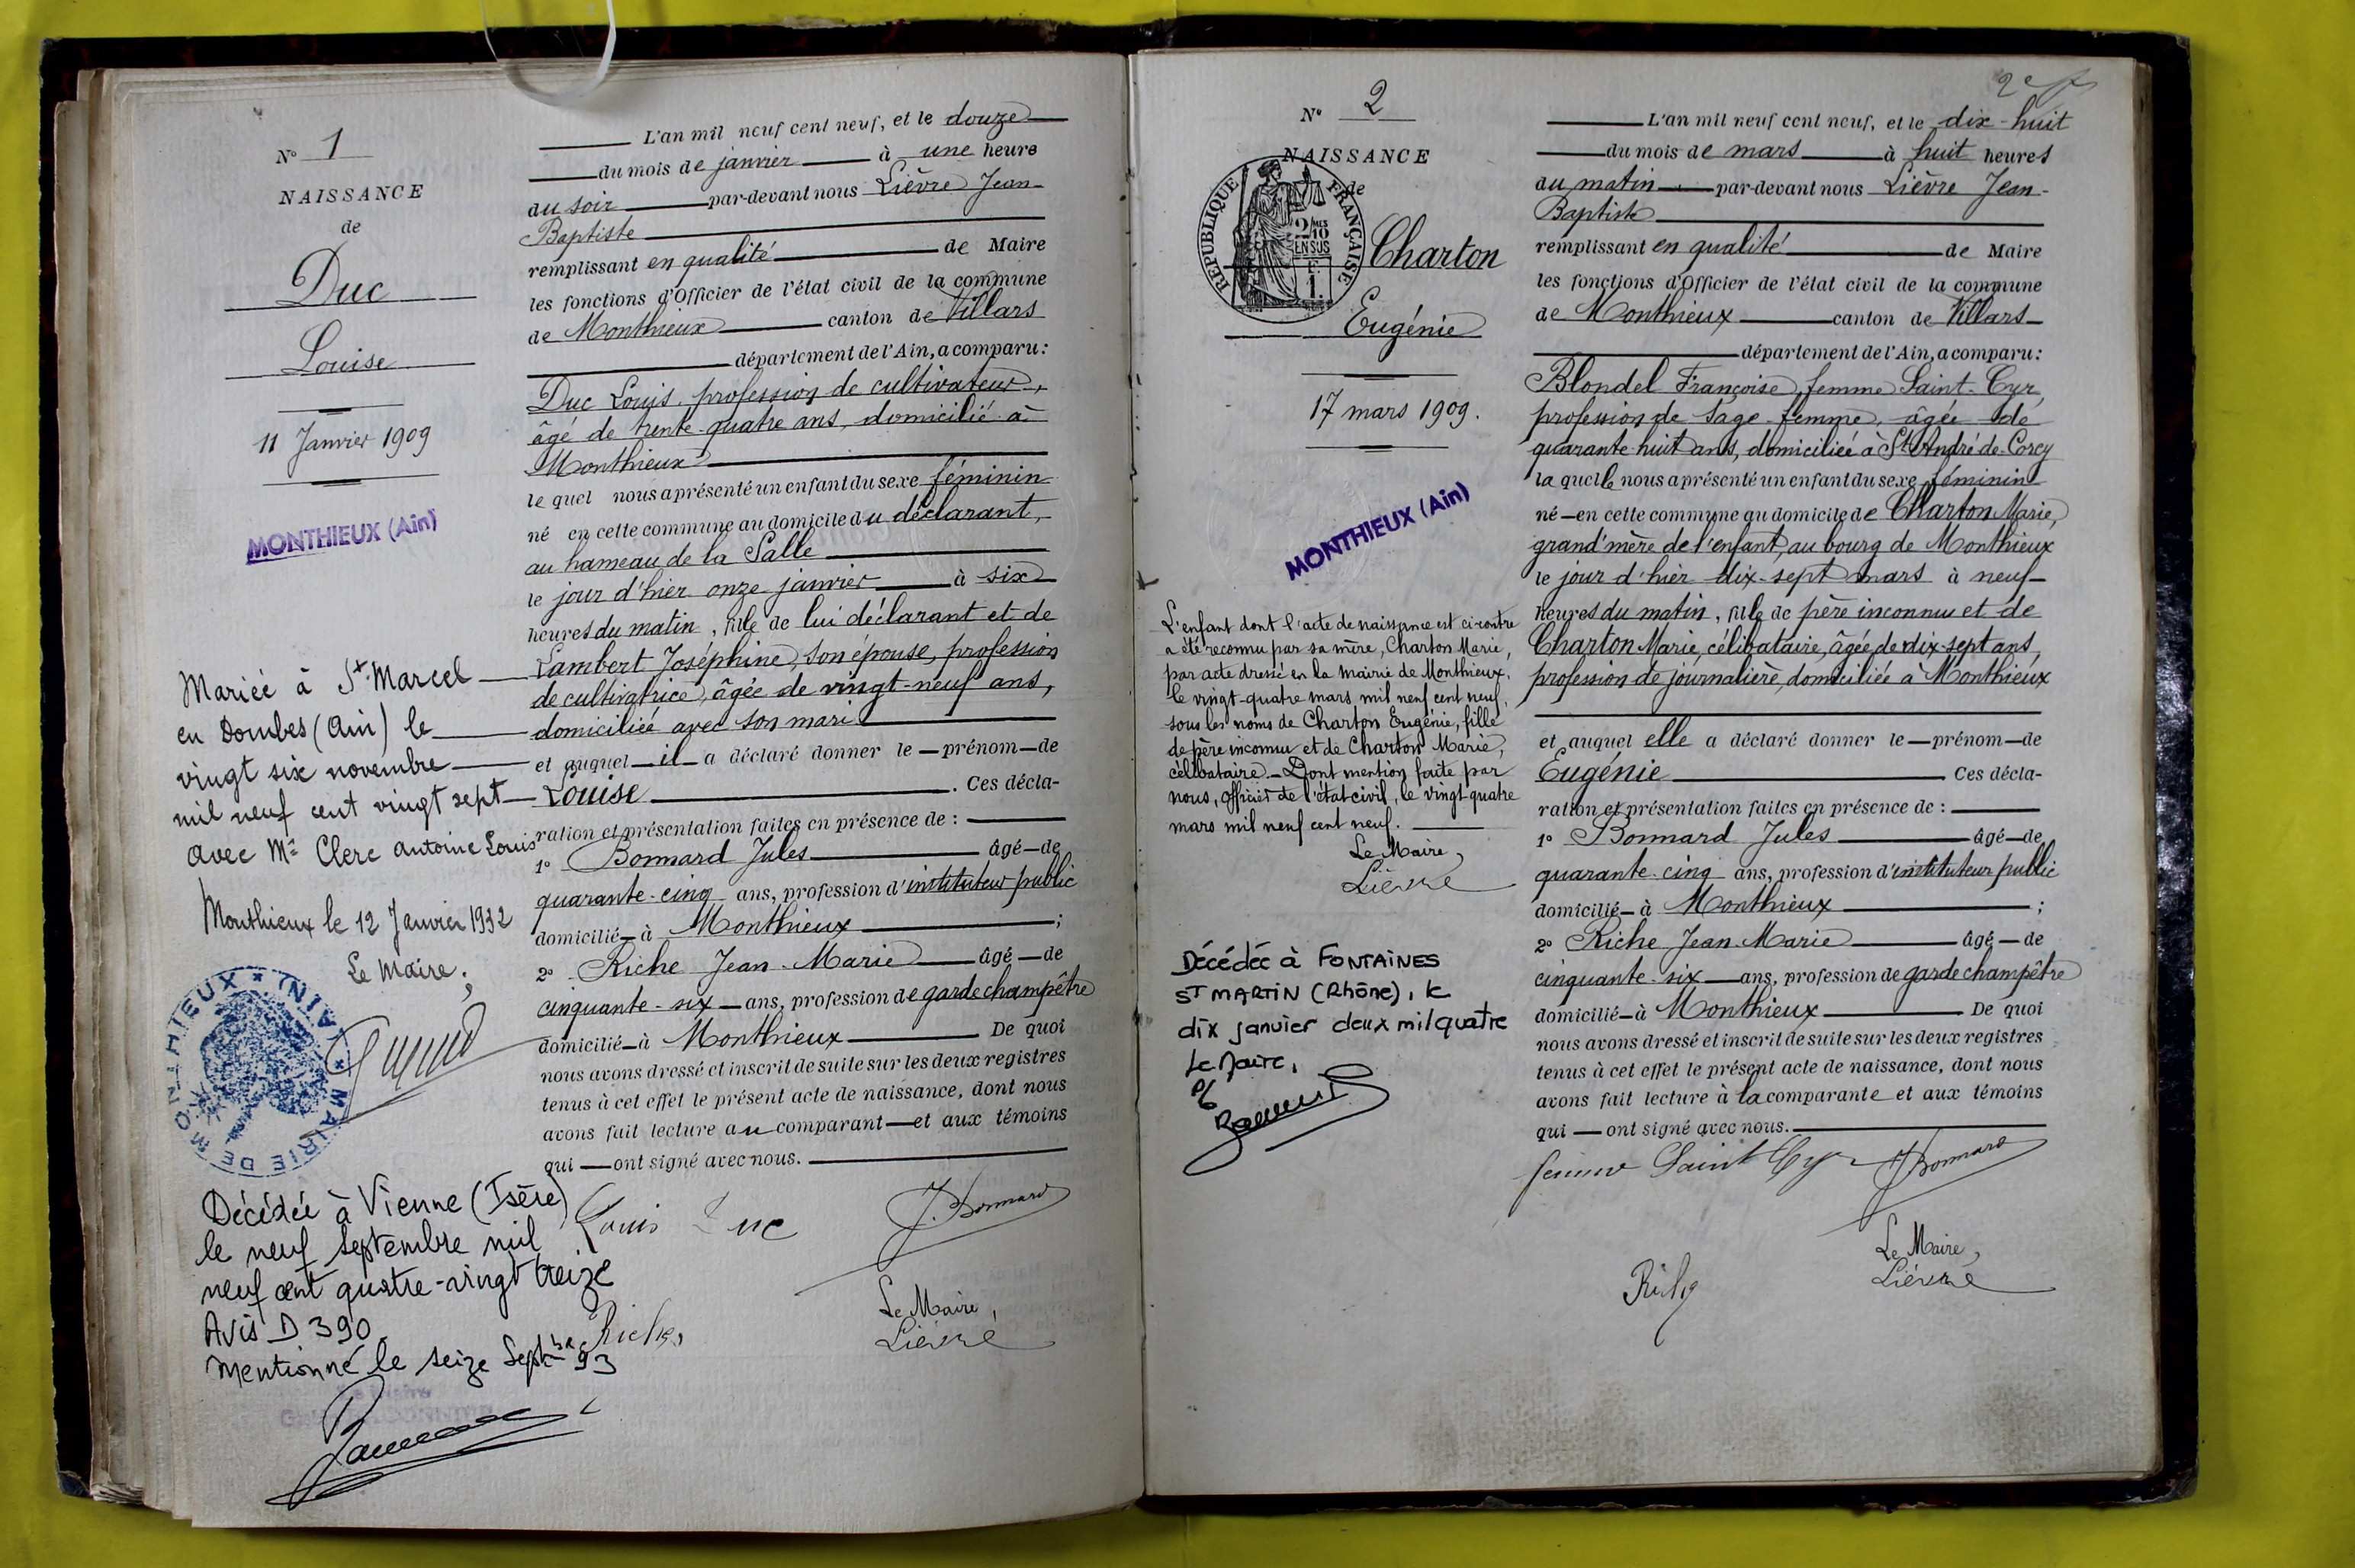 N° 1
NAISSANCE
de
Duc
Louise
11 Janvier 1909
MONTHIEUX (Ain)
Mariée à St Marcel
en Dombes (Ain) le
vingt six novembre
mil neuf cent vingt sept
avec Mr Clerc Antoine Louis
Monthieux le 12 Janvier 1932
Le Maire,
MAIRIE DE MONTHIEUX * (AIN) *
Décédée à Vienne (Isère)
le neuf septembre mil
neuf cent quatre-vingt treize
Avis D 390
Mentionné le seize Septbre 93
L'an mil neuf cent neuf, et le douze
du mois de janvier à une heure
du soir par-devant nous Lièvre Jean-
Baptiste
remplissant en qualité de Maire
les fonctions d'Officier de l'état civil de la commune
de Monthieux canton de Villars
département de l'Ain, a comparu :
Duc Louis, profession de cultivateur,
âgé de trente-quatre ans, domicilié à
Monthieux
le quel nous a présenté un enfant du sexe féminin
né en cette commune au domicile du déclarant,
au hameau de la Salle
le jour d'hier onze janvier à six
heures du matin, fille de lui déclarant et de
Lambert Joséphine, son épouse, profession
de cultivatrice, âgée de vingt-neuf ans,
domiciliée avec son mari
et auquel il a déclaré donner le prénom de
Louise. Ces décla-
ration et présentation faites en présence de :
1° Bonnard Jules âgé de
quarante-cinq ans, profession d'instituteur public
domicilié à Monthieux ;
2° Riche Jean-Marie âgé de
cinquante-six ans, profession de garde champêtre
domicilié à Monthieux De quoi
nous avons dressé et inscrit de suite sur les deux registres
tenus à cet effet le présent acte de naissance, dont nous
avons fait lecture au comparant et aux témoins
qui ont signé avec nous.
Louis Duc J. Bonnard
Riche
Le Maire,
Lièvre
2e
N° 2
NAISSANCE
de
REPUBLIQUE FRANÇAISE
2/10 MES
EN SUS
F.
1.
Charton
Eugénie
17 mars 1909.
MONTHIEUX (Ain)
L'enfant dont l'acte de naissance est ci-contre
a été reconnu par sa mère, Charton Marie,
par acte dressé en la mairie de Monthieux,
le vingt-quatre mars mil neuf cent neuf,
sous les noms de Charton Eugénie, fille
de père inconnu et de Charton Marie,
célibataire. - Dont mention faite par
nous, officier de l'état civil, le vingt-quatre
mars mil neuf cent neuf.
Le Maire,
Lièvre
Décédée à FONTAINES
ST MARTIN (Rhône), le
dix janvier deux mil quatre
Le Maire,
L'an mil neuf cent neuf, et le dix-huit
du mois de mars à huit heures
du matin par-devant nous Lièvre Jean-
Baptiste
remplissant en qualité de Maire
les fonctions d'Officier de l'état civil de la commune
de Monthieux canton de Villars
département de l'Ain, a comparu :
Blondel Françoise, femme Saint-Cyr,
profession de sage-femme, âgée de
quarante-huit ans, domiciliée à St André-de-Corcy
la quelle nous a présenté un enfant du sexe féminin
né en cette commune au domicile de Charton Marie,
grand'mère de l'enfant, au bourg de Monthieux
le jour d'hier dix-sept mars à neuf
heures du matin, fille de père inconnu et de
Charton Marie, célibataire, âgée de dix-sept ans,
profession de journalière, domiciliée à Monthieux
et auquel elle a déclaré donner le prénom de
Eugénie Ces décla-
ration et présentation faites en présence de :
1° Bonnard Jules âgé de
quarante-cinq ans, profession d'instituteur public
domicilié à Monthieux ;
2° Riche Jean-Marie âgé de
cinquante-six ans, profession de garde champêtre
domicilié à Monthieux De quoi
nous avons dressé et inscrit de suite sur les deux registres
tenus à cet effet le présent acte de naissance, dont nous
avons fait lecture à la comparante et aux témoins
qui ont signé avec nous.
femme Saint Cyr J Bonnard
Riche
Le Maire,
Lièvre